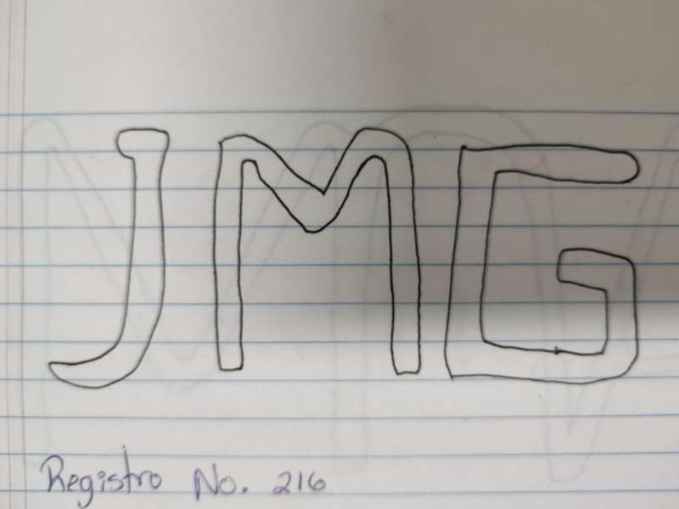 JMG
Registro No. 216